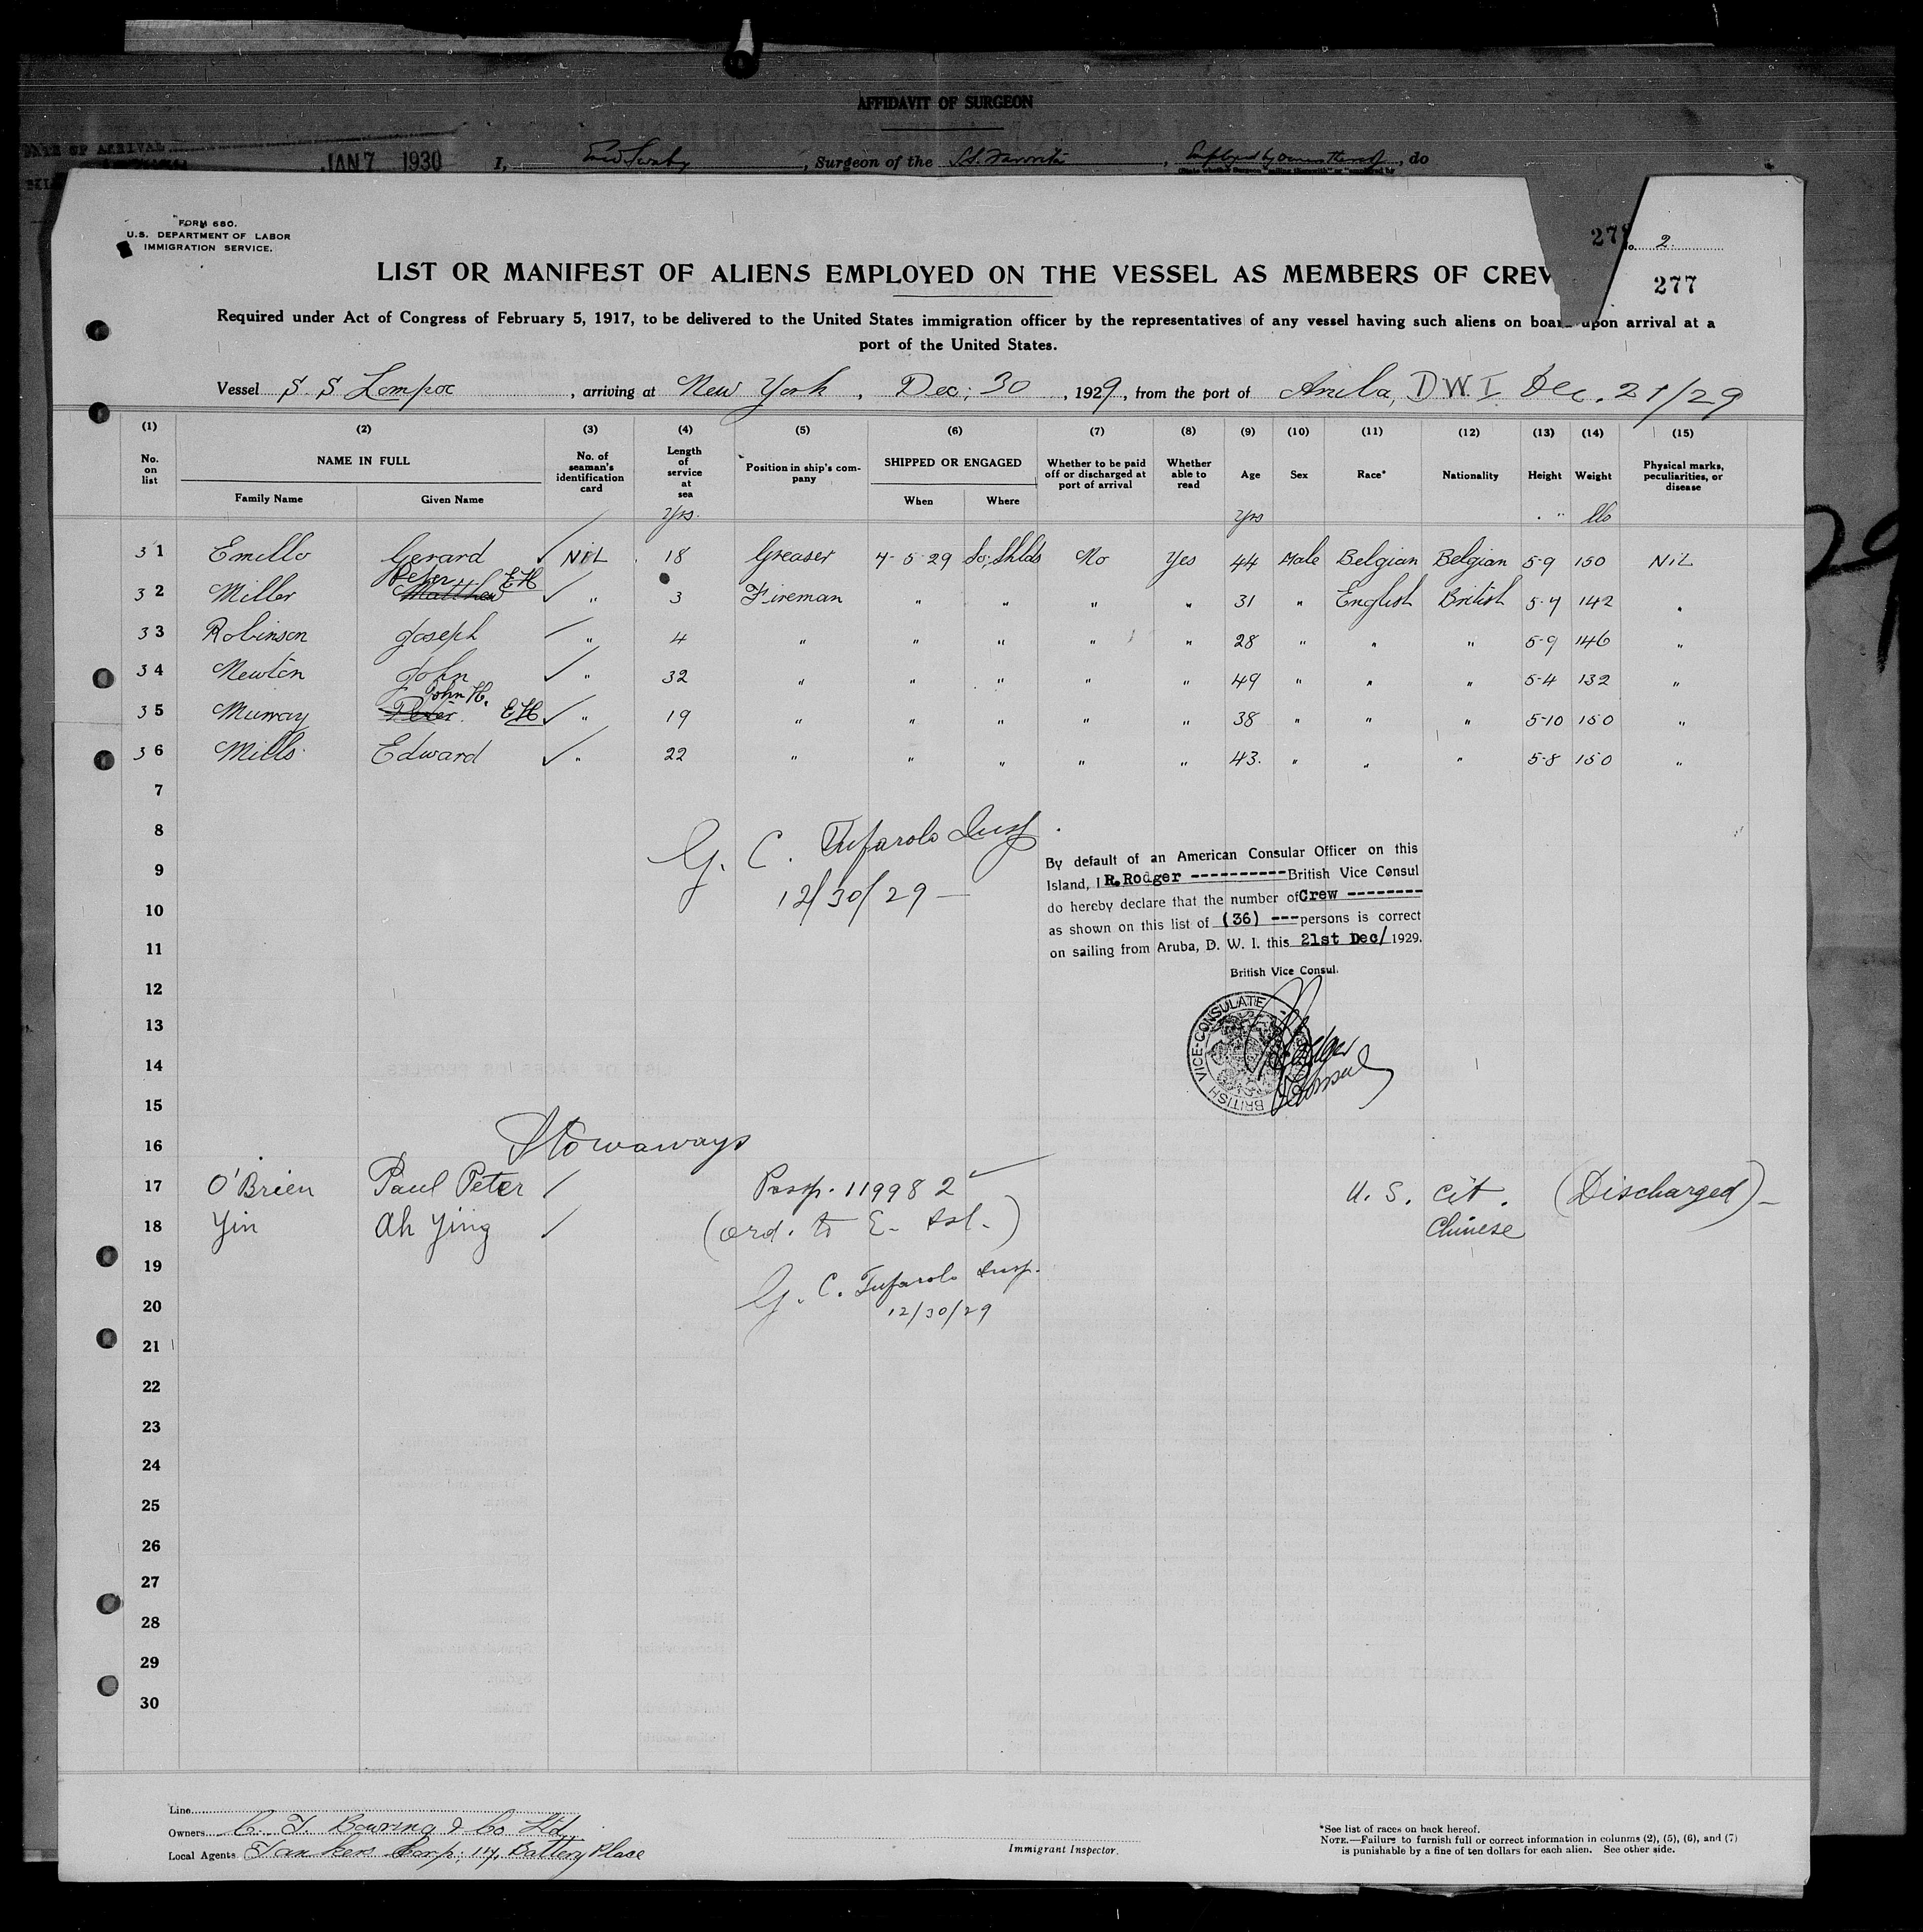 AFFIDAVIT OF SURGEON
DATE OF ARRIVAL JAN 7 1930 I, , Surgeon of the S.S. , , do
FORM 680.
U.S. DEPARTMENT OF LABOR
IMMIGRATION SERVICE.
278
No. 2
277
LIST OR MANIFEST OF ALIENS EMPLOYED ON THE VESSEL AS MEMBERS OF CREW
Required under Act of Congress of February 5, 1917, to be delivered to the United States immigration officer by the representatives of any vessel having such aliens on board upon arrival at a
port of the United States.
Vessel S. S Lompoc, arriving at New York, Dec; 30, 1929, from the port of Aruba, D.W.I. Dec. 21/29
(1) (2) (3) (4) (5) (6) (7) (8) (9) (10) (11) (12) (13) (14) (15)
No. on list NAME IN FULL Family Name Given Name No. of seaman's identification card Length of service at sea Position in ship's company SHIPPED OR ENGAGED When Where Whether to be paid off or discharged at port of arrival Whether able to read Age Sex Race* Nationality Height Weight Physical marks, peculiarities, or disease
Yrs. Yrs ' " lbs
31 Emello Gerard ✓ NIL 18 Greaser 7-5-29 So; Shlds No Yes 44 Male Belgian Belgian 5-9 150 NIL
Peter EH
32 Miller Matthew ✓ " 3 Fireman " " " " 31 " English British 5-7 142 "
33 Robinson Joseph " 4 " " " " " 28 " " " 5-9 146 "
34 Newton John ✓ " 32 " " " " " 49 " " " 5-4 132 "
John H.
35 Murray Peter EH ✓ " 19 " " " " " 38 " " " 5-10 150 "
36 Mills Edward ✓ " 22 " " " " " 43. " " " 5-8 150 "
7
8
G. C. Tufarolo Insp.
12/30/29
By default of an American Consular Officer on this
Island, I R. Rodger ---------- British Vice Consul
do hereby declare that the number of Crew --------
as shown on this list of (36) --- persons is correct
on sailing from Aruba, D. W. I. this 21st Dec/ 1929.
British Vice Consul.
BRITISH VICE-CONSULATE
Rodger
V Consul
9
10
11
12
13
14
15
16
Stowaways
17 O'Brien Paul Peter / Passp. 119982 ✓ U. S. cit. (Discharged)
18 Yin Ah Ying / (ord. to E. Isl.) Chinese
19
G. C. Tufarolo Insp.
20
12/30/29
21
22
23
24
25
26
27
28
29
30
Line
Owners C. T. Bowring & Co Ltd.
Local Agents Tankers Corp; 17, Battery Place
Immigrant Inspector.
*See list of races on back hereof.
NOTE.—Failure to furnish full or correct information in columns (2), (5), (6), and (7)
is punishable by a fine of ten dollars for each alien. See other side.